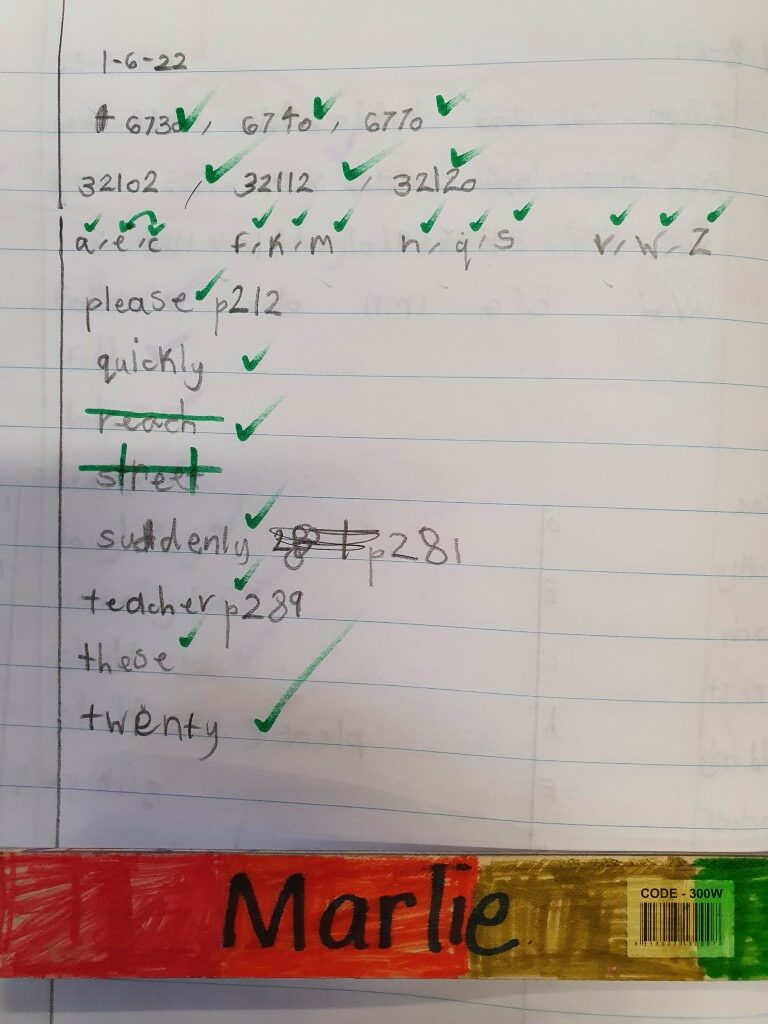 1-6-22
6730, 6740, 6770
32102, 32112, 32120
a, e, c f, k, m n, q, s v, w, z
please p212
quickly
reach
street
suddenly p281
teacher p289
these
twenty
Marlie
CODE - 300W